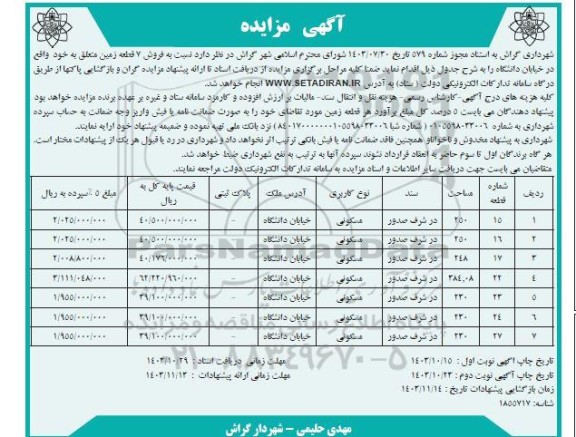 آگهی مزایده
شهرداری گراش به استناد مجوز شماره ۵۷۹ تاریخ ۱۴۰۳/۰۷/۳۰ شورای محترم اسلامی شهر گراش در نظر دارد نسبت به فروش ۷ قطعه زمین متعلق به خود واقع
در خیابان دانشگاه را به شرح جدول ذیل اقدام نماید ضمنا کلیه مراحل برگزاری مزایده از دریافت اسناد تا ارائه پیشنهاد مزایده گران و بازگشایی پاکتها از طریق
درگاه سامانه تدارکات الکترونیکی دولت (ستاد) به آدرس WWW.SETADIRAN.IR انجام خواهد شد.
کلیه هزینه های درج آگهی -کارشناس رسمی -هزینه نقل و انتقال سند- مالیات بر ارزش افزوده و کارمزد سامانه ستاد و غیره بر عهده برنده مزایده خواهد بود
پیشنهاد دهندگان می بایست ۵ درصد کل مبلغ برآورد هر قطعه زمین مورد تقاضای خود را به صورت ضمانت نامه یا فیش واریز وجه ضمانت به حساب سپرده
شهرداری به شماره نزد بانک ملی تهیه نموده و ضمیمه پیشنهاد خود ارایه نمایند.
شهرداری به پیشنهاد مخدوش و ناخوانا و همچنین فاقد ضمانت نامه یا فیش بانکی ترتیب اثر نخواهد داد و شهرداری در رد یا قبول هر یک از پیشنهادات مختار است.
هر گاه برندگان اول تا سوم حاضر به انعقاد قرارداد نشوند سپرده آنها به ترتیب به نفع شهرداری ضبط خواهد شد.
متقاضیان می بایست جهت دریافت سایر اطلاعات و اسناد مزایده به سامانه تدارکات الکترونیک دولت مراجعه نمایند.
ردیف شماره قطعه مساحت سند نوع کاربری آدرس ملک پلاک ثبتی قیمت پایه کل به ریال مبلغ ۵٪ سپرده به ریال
۱ ۱۵ ۲۵۰ در شرف صدور مسکونی خیابان دانشگاه - ۴۰/۵۰۰/۰۰۰/۰۰۰ ۲/۰۲۵/۰۰۰/۰۰۰
۲ ۱۶ ۲۵۰ در شرف صدور مسکونی خیابان دانشگاه - ۴۰/۵۰۰/۰۰۰/۰۰۰ ۲/۰۲۵/۰۰۰/۰۰۰
۳ ۱۷ ۲۴۸ در شرف صدور مسکونی خیابان دانشگاه - ۴۰/۱۷۶/۰۰۰/۰۰۰ ۲/۰۰۸/۸۰۰/۰۰۰
۴ ۲۲ ۳۸۴,۰۸ در شرف صدور مسکونی خیابان دانشگاه - ۶۲/۲۲۰/۹۶۰/۰۰۰ ۳/۱۱۱/۰۴۸/۰۰۰
۵ ۲۳ ۲۳۰ در شرف صدور مسکونی خیابان دانشگاه - ۳۹/۱۰۰/۰۰۰/۰۰۰ ۱/۹۵۵/۰۰۰/۰۰۰
۶ ۲۴ ۲۳۰ در شرف صدور مسکونی خیابان دانشگاه - ۳۹/۱۰۰/۰۰۰/۰۰۰ ۱/۹۵۵/۰۰۰/۰۰۰
۷ ۲۷ ۲۳۰ در شرف صدور مسکونی خیابان دانشگاه - ۳۹/۱۰۰/۰۰۰/۰۰۰ ۱/۹۵۵/۰۰۰/۰۰۰
تاریخ چاپ آگهی نوبت اول : ۱۴۰۳/۱۰/۱۵ مهلت زمانی دریافت اسناد : ۱۴۰۳/۱۰/۲۹
تاریخ چاپ آگهی نوبت دوم : ۱۴۰۳/۱۰/۲۳ مهلت زمانی ارائه پیشنهادات : ۱۴۰۳/۱۱/۱۳
زمان بازگشایی پیشنهادات تاریخ : ۱۴۰۳/۱۱/۱۴
شناسه: ۱۸۵۵۷۱۷
مهدی حلیمی - شهردار گراش